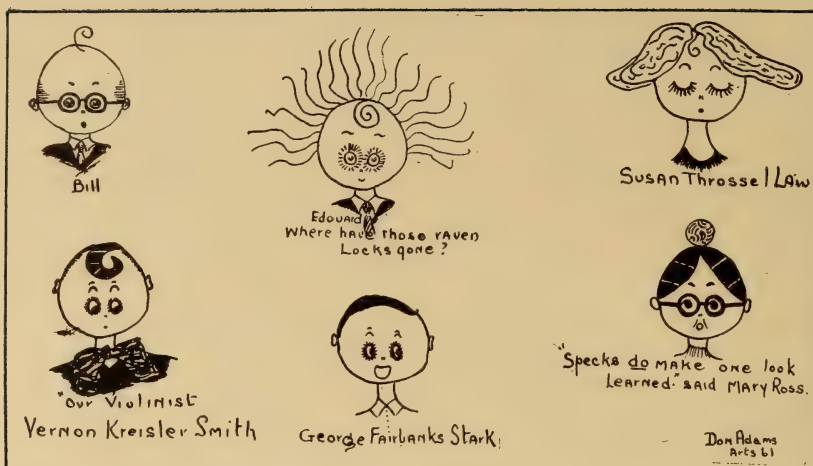 Bill
Edouard
Where have those raven
Locks gone?
Susan Throssell Law
"Our Violinist
Vernon Kreisler Smith
George Fairbanks Stark
"Specks do make one look
Learned." said Mary Ross.
Don Adams
Arts 61